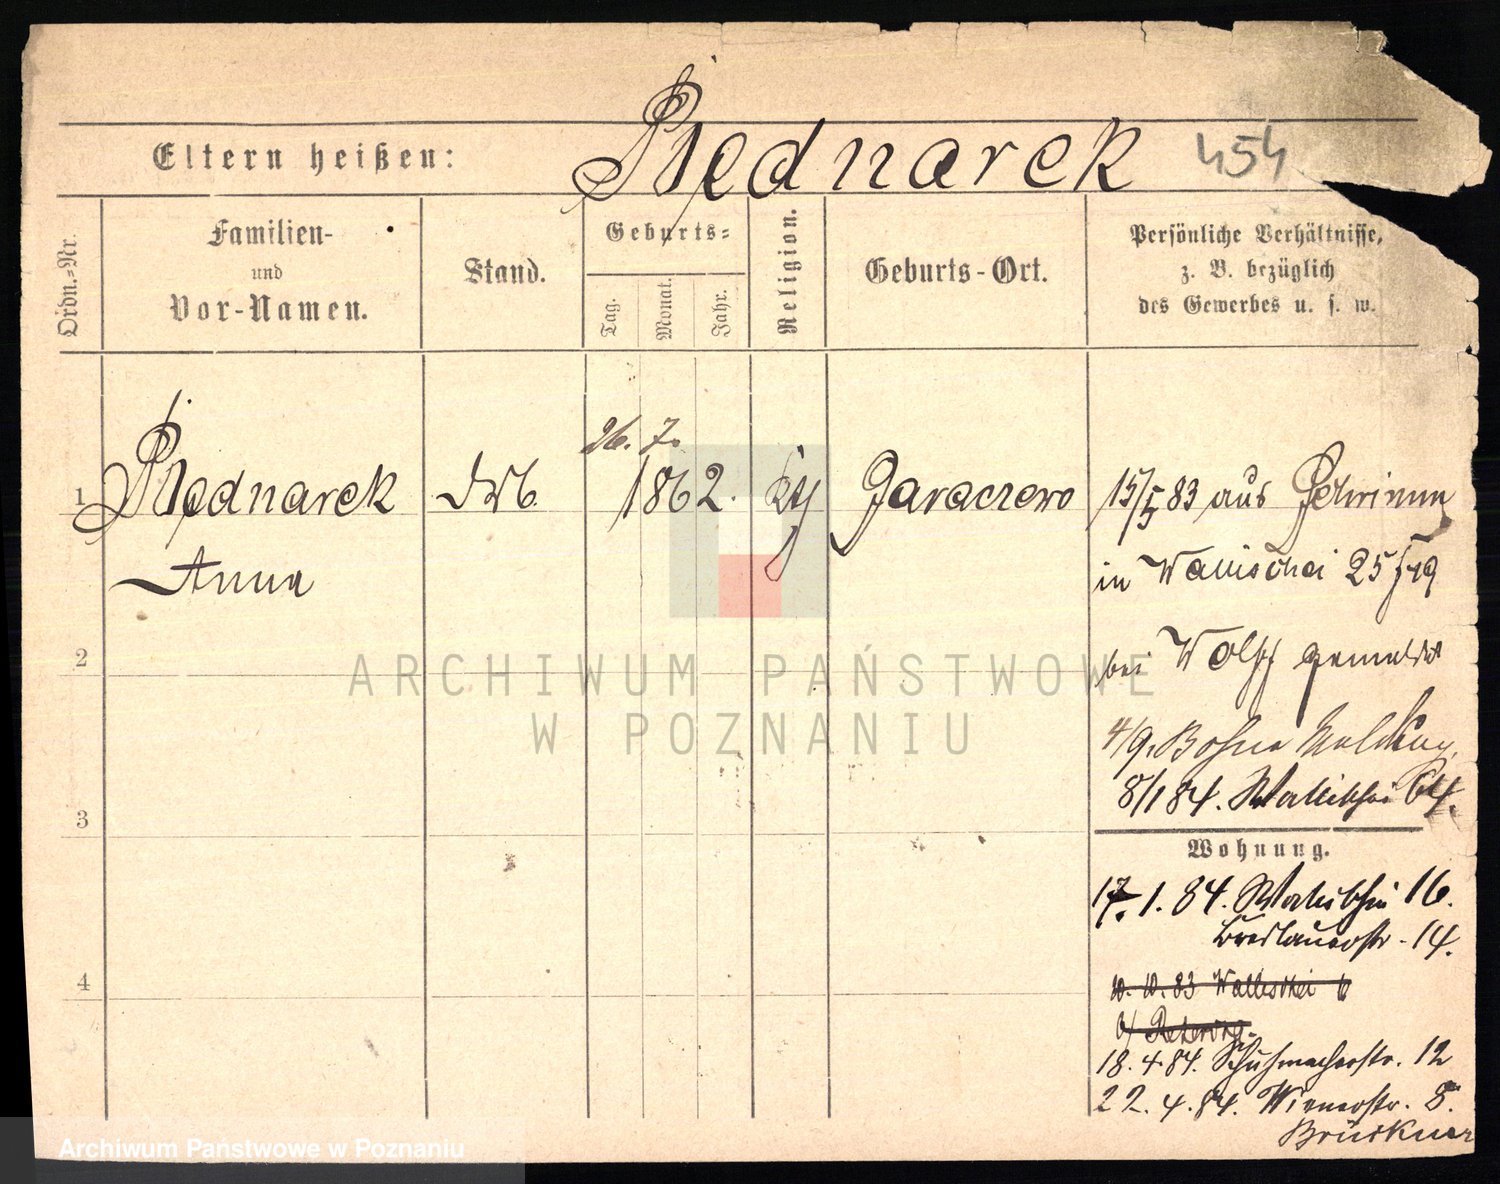 Bednarek 454
Eltern heißen:
Ordn.-Nr.
Familien-
und
Vor-Namen.
Stand.
Geburts-
Tag.
Monat.
Jahr.
Religion.
Geburts-Ort.
Persönliche Verhältnisse,
z. B. bezüglich
des Gewerbes u. s. w.
26. 7.
1 Bednarek 1862. Jaraczewo 15/5 83 aus
Anna
in Wallischei
2
bei Wolff gemeldet
4/9.
8/1 84. Wallischei 64.
3
Wohnung.
17. 1. 84. Wallischei 16.
Breslauerstr. 14.
4
10. 10. 83 Wallischei 6
b/
18. 4. 84. Schuhmacherstr. 12
22. 4. 84. Wienerstr. 8.
Brückner
ARCHIWUM PAŃSTWOWE
W POZNANIU
Archiwum Państwowe w Poznaniu